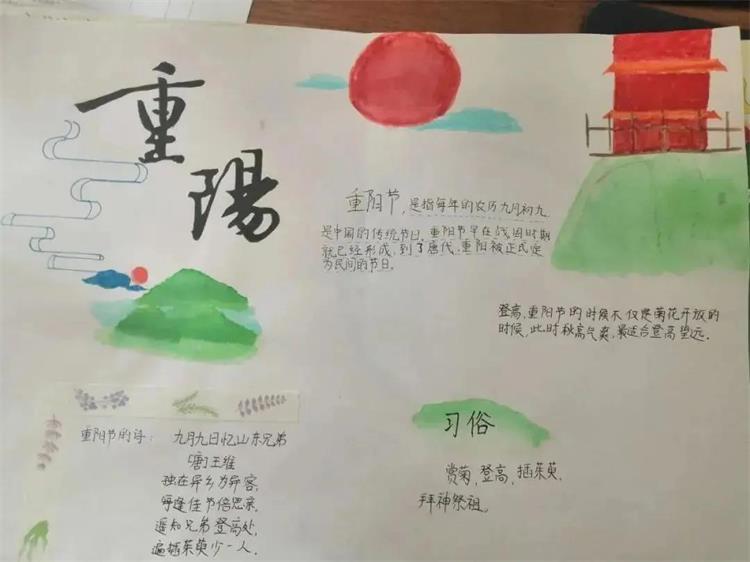 重陽
重阳节,是指每年的农历九月初九
是中国的传统节日,重阳节早在战国时期
就已经形成,到了唐代,重阳被正式定
为民间的节日。
登高,重阳节的时候不仅是菊花开放的
时候,此时秋高气爽,最适合登高望远。
习俗
赏菊,登高,插茱萸,
拜神祭祖。
重阳节的诗: 九月九日忆山东兄弟
[唐]王维
独在异乡为异客,
每逢佳节倍思亲,
遥知兄弟登高处,
遍插茱萸少一人.